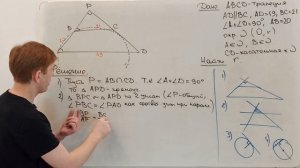 Дано:
ABCD-трапеция
AD||BC, AD=19, BC=21
∠A+∠D=90°, AB=20
окр. ω (O, r)
A∈ω, B∈ω
CD-касательная к ω
Найти
P
B
C
D
A
Решение
1) Пусть P = AB∩CD. Т.к ∠A+∠D=90°
то △ APD-прям.
2) △ BPC ~ △ APD по 2 углам (∠P-общий,
∠PBC = ∠PAD как соотв при парал.)
BP
BC
AP
1)
2)
3)